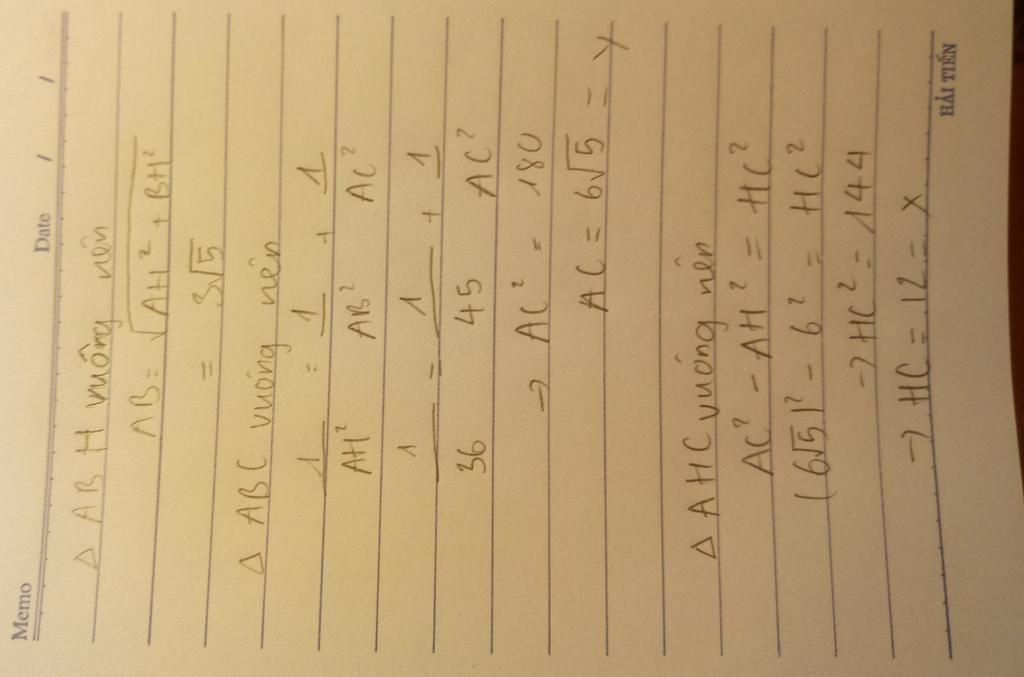 Memo
Date / /
Δ ABH vuông nên
AB = √AH² + BH²
= 3√5
Δ ABC vuông nên
1/AH² = 1/AB² + 1/AC²
1/36 = 1/45 + 1/AC²
→ AC² = 180
AC = 6√5 = y
Δ AHC vuông nên
AC² - AH² = HC²
(6√5)² - 6² = HC²
→ HC² = 144
→ HC = 12 = x
HẢI TIẾN